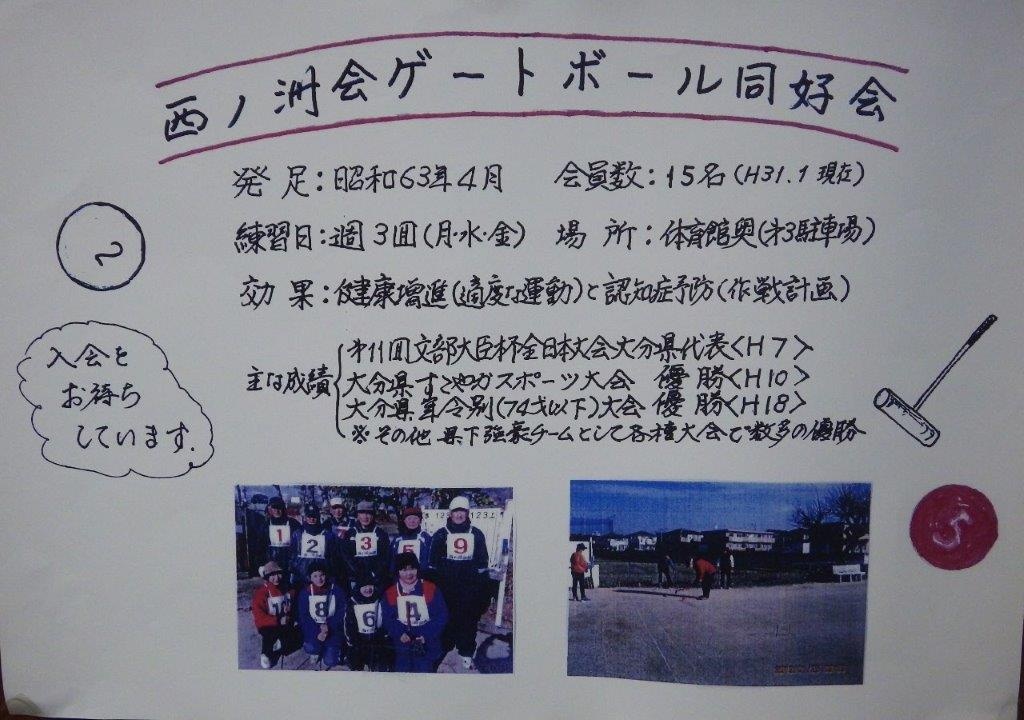 西ノ洲会ゲートボール同好会
発足:昭和63年4月 会員数:15名(H31.1現在)
練習日:週3回(月・水・金) 場所:体育館奥(第3駐車場)
効果:健康増進(適度な運動)と認知症予防(作戦計画)
主な成績
第11回文部大臣杯全日本大会大分県代表<H7>
大分県すこやかスポーツ大会 優勝<H10>
大分県年令別(74才以下)大会 優勝<H18>
※その他 県下強豪チームとして各種大会で数多の優勝
2
入会を
お待ち
しています.
5
1 2 3 5 9
10 8 6 4